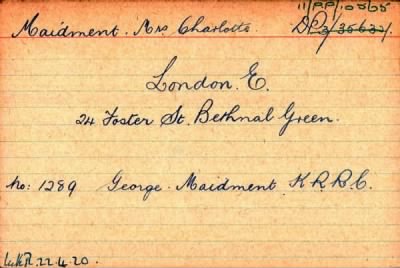 11/PP/10565
Maidment. Mrs Charlotte. DP3/35632/.
London. E.
24 Foster St. Bethnal Green.
No: 1289 George. Maidment K. R. R. C.
22.4.20.